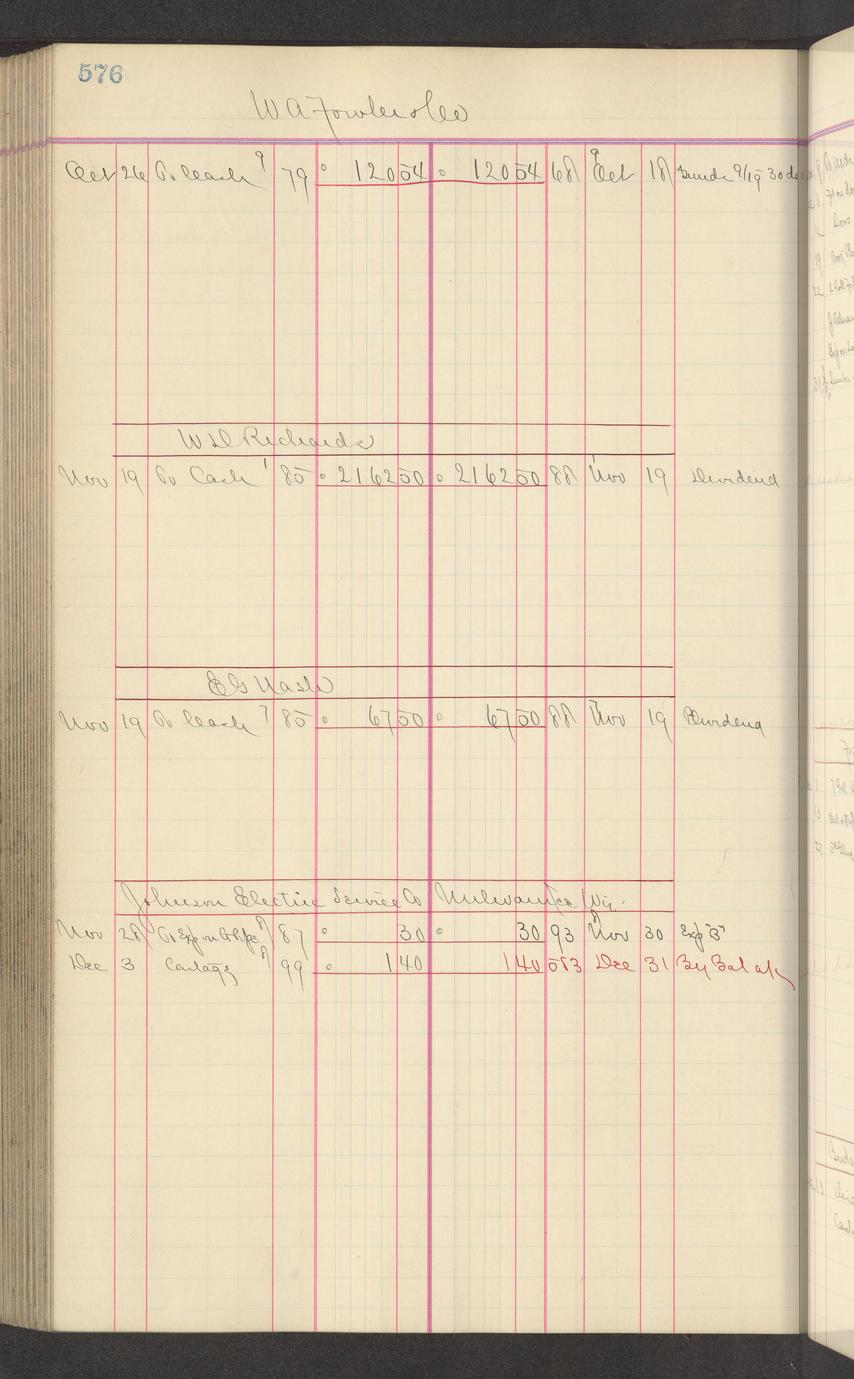 576
W A Fowler & Co
Oct 26 To Cash 9 79 120 54 120 54 68 9 Oct 18 9/19 30 ds
W D Richards
Nov 19 To Cash 1 85 2162 50 2162 50 88 1 Nov 19 Dividend
E G Nash
Nov 19 To Cash 7 85 67 50 67 50 88 7 Nov 19 Dividend
Johnson Electric Service Co Milwaukee Wis.
Nov 28 To Exp on 8 87 30 30 93 8 Nov 30 Exp "B"
Dec 3 Cartage 8 99 1 40 1 40 583 Dec 31 By Bal a/c